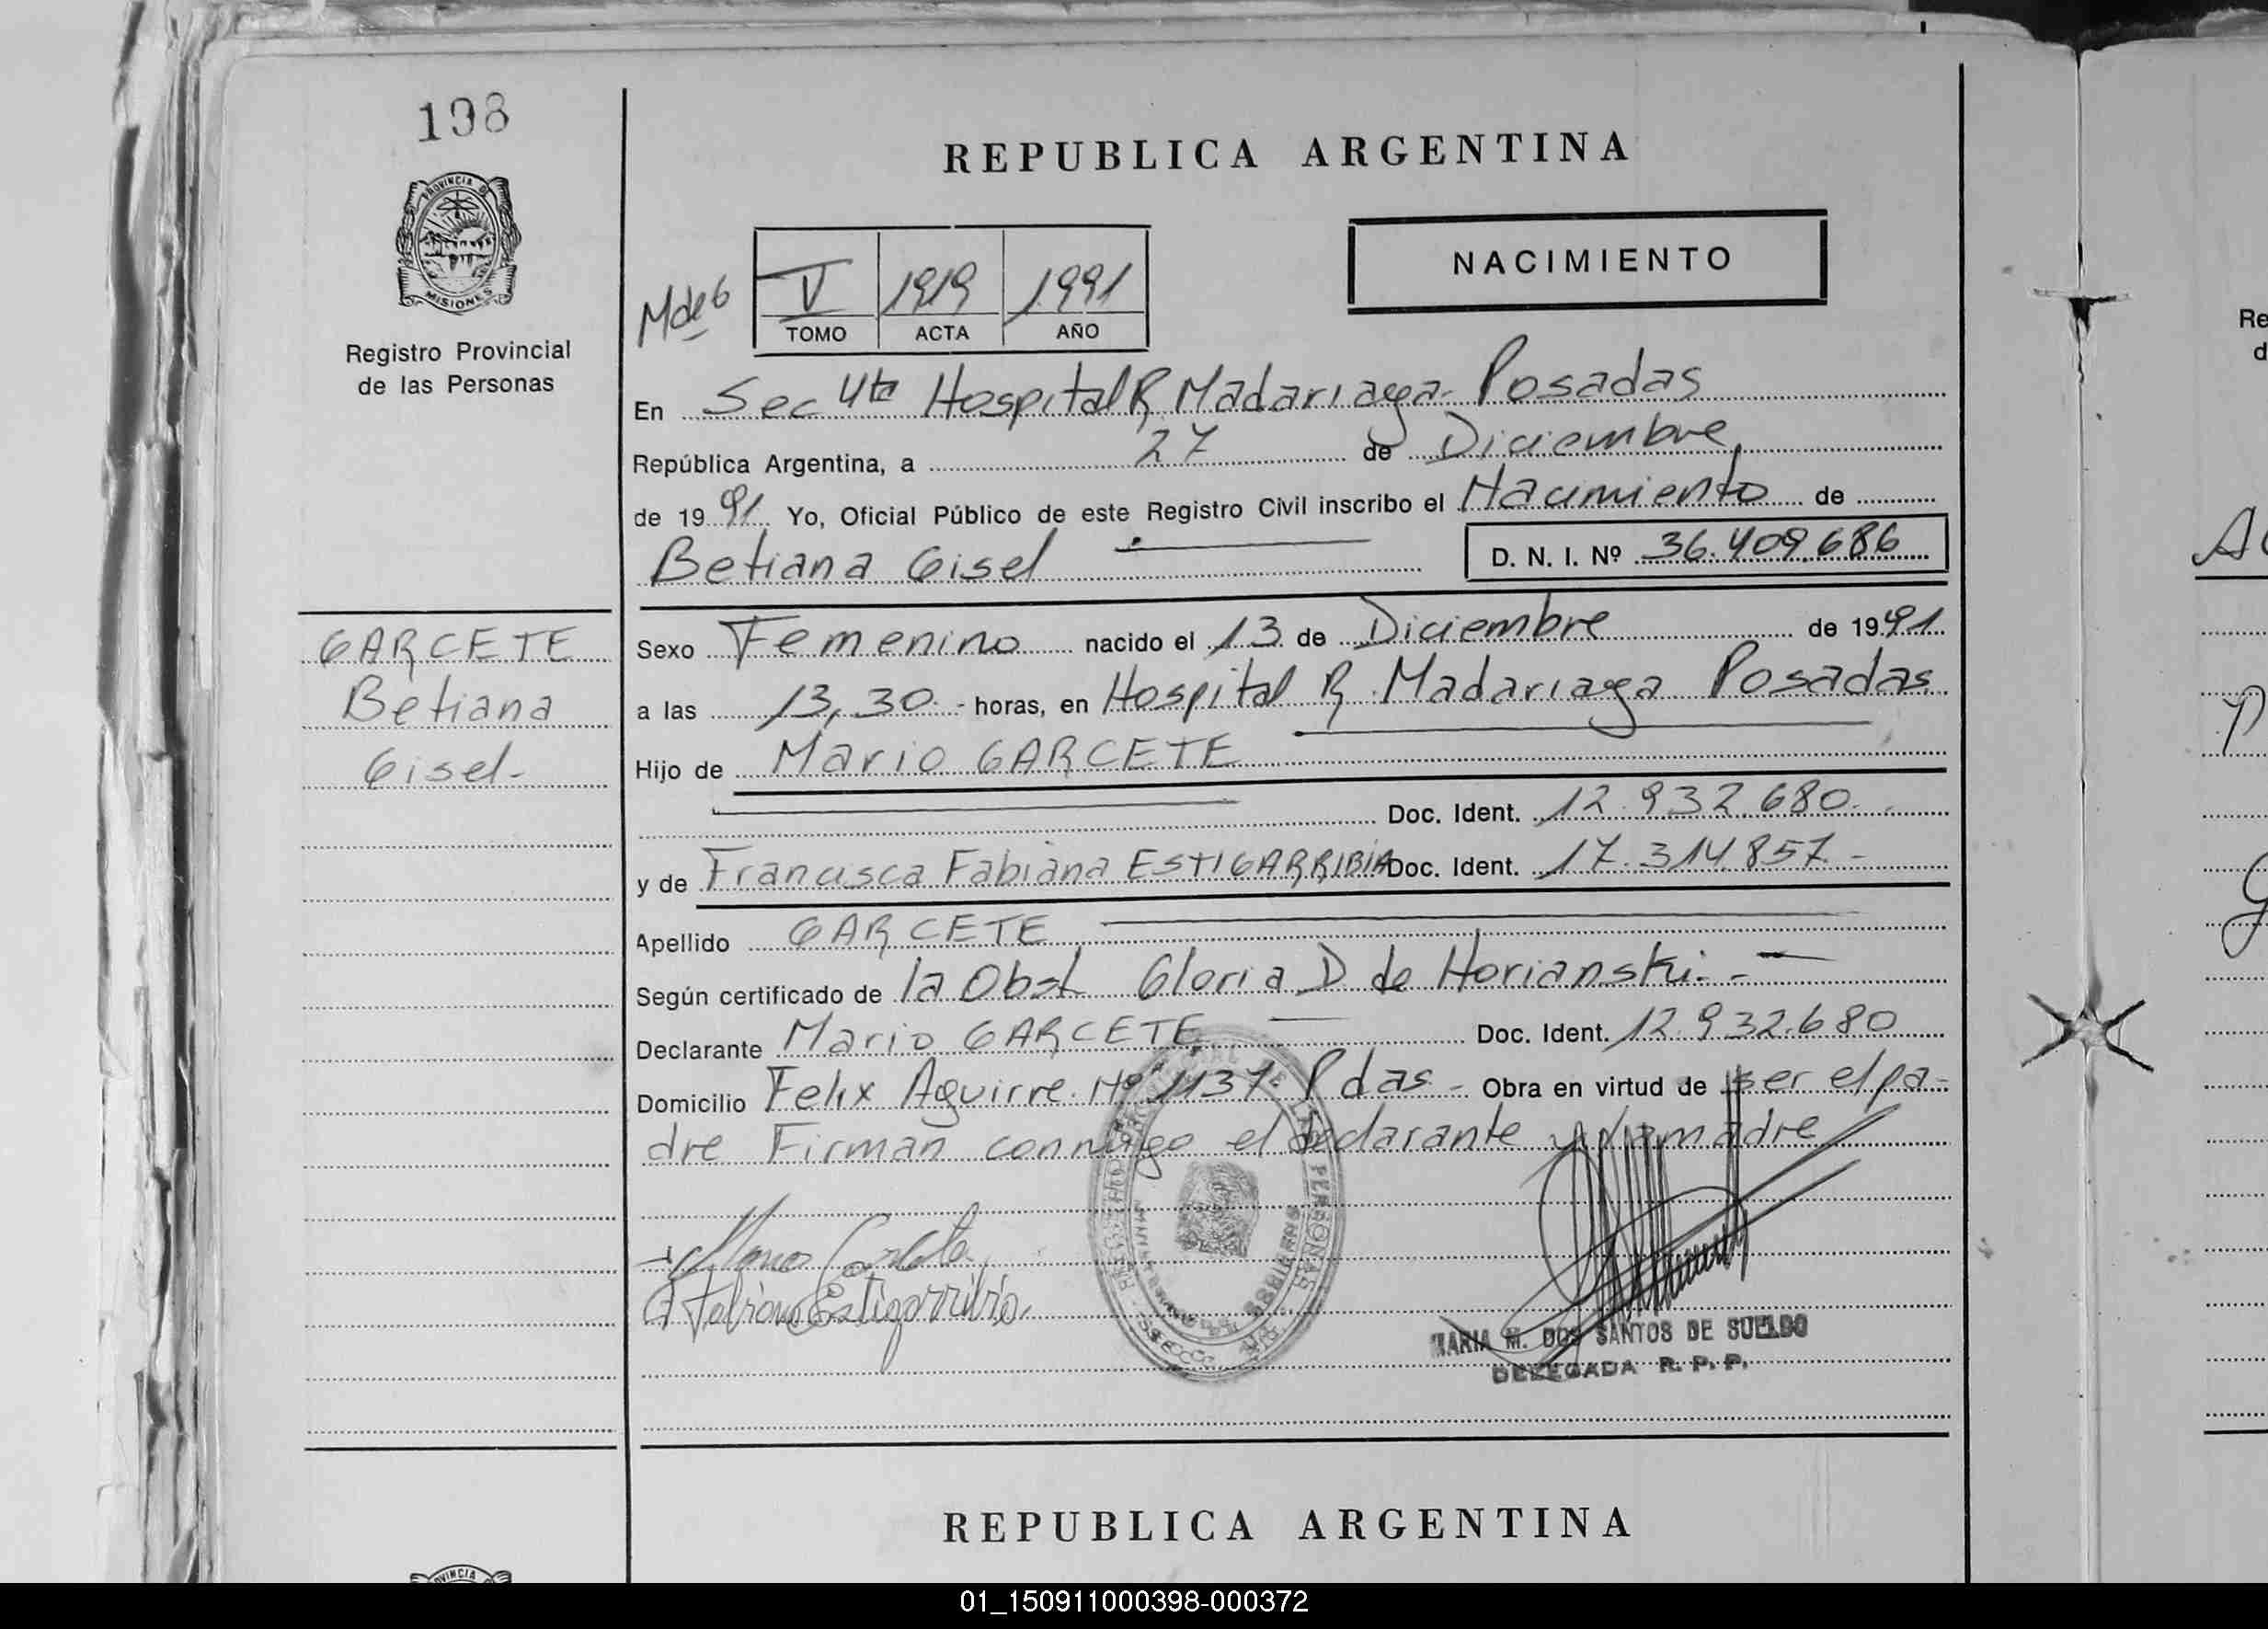 198
PROVINCIA DE
MISIONES
Registro Provincial
de las Personas
GARCETE
Betiana
Gisel-
REPUBLICA ARGENTINA
NACIMIENTO
V 1919 1991
TOMO ACTA AÑO
En Sec 4ta Hospital R Madariaga- Posadas
República Argentina, a 27 de Diciembre
de 1991 Yo, Oficial Público de este Registro Civil inscribo el Nacimiento de
Betiana Gisel D. N. I. Nº 36.409.686
Sexo Femenino nacido el 13 de Diciembre de 1991
a las 13,30 - horas, en Hospital R. Madariaga Posadas
Hijo de Mario GARCETE
Doc. Ident. 12.932.680.
y de Francisca Fabiana ESTIGARRIBIA Doc. Ident. 17.314.857-
Apellido GARCETE
Según certificado de la Obst Gloria D de Horianski.-
Declarante Mario GARCETE Doc. Ident. 12.932.680
Domicilio Felix Aguirre Nº 1137 Pdas- Obra en virtud de ser el pa-
dre Firman conmigo el declarante y la madre
Fabiana Estigarribia
MARIA M. DOS SANTOS DE SUELDO
DELEGADA R. P. P.
REPUBLICA ARGENTINA
PROVINCIA
Re
d
01_150911000398-000372